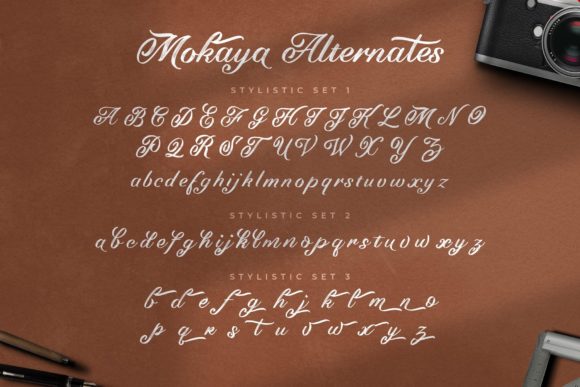 Mokaya Alternates
STYLISTIC SET 1
A B C D E F G H I J K L M N O
P Q R S T U V W X Y Z
abcdefghijklmnopqrstuvwxyz
STYLISTIC SET 2
abcdefghijklmnopqrstuvwxyz
STYLISTIC SET 3
b d e f g h j k l m n o
p q r s t u v w x y z